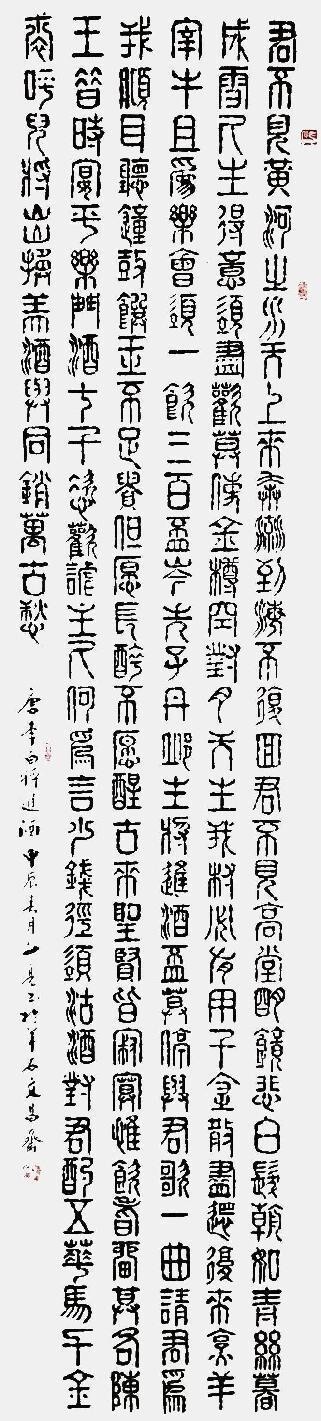 君不見黃河之水天上來奔流到海不復回君不見高堂明鏡悲白髮朝如青絲暮
成雪人生得意須盡歡莫使金樽空對月天生我材必有用千金散盡還復來烹羊
宰牛且為樂會須一飲三百盃岑夫子丹邱生將進酒盃莫停與君歌一曲請君為
我傾耳聽鐘鼓饌玉不足貴但愿長醉不愿醒古來聖賢皆寂寞惟飲者留其名陳
王昔時宴平樂斗酒十千恣歡謔主人何為言少錢徑須沽酒對君酌五華馬千金
裘呼兒將出換美酒與同銷萬古愁
唐李白將進酒甲辰春月書於羊石文昌齋